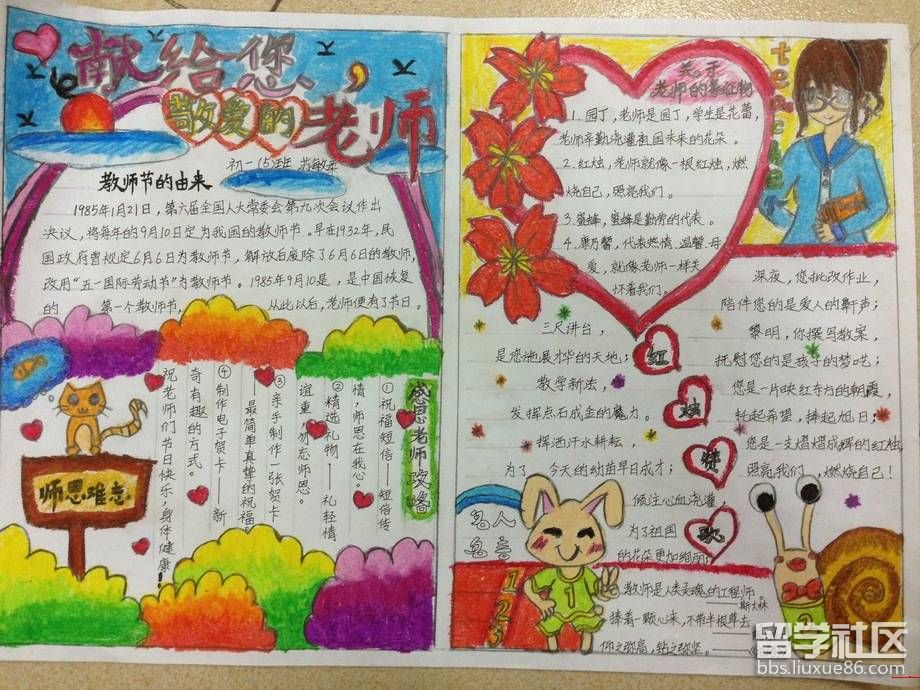 献给您、
敬爱的老师
初一(5)班
教师节的由来
1985年1月21日,第六届全国人大常委会第九次会议作出
决议,将每年的9月10日定为我国的教师节。早在1932年,民
国政府曾规定6月6日为教师节,解放后废除了6月6日的教师节,
改用“五一国际劳动节”为教师节。1985年9月10是,是中国恢复
的 第一个教师节, 从此以后,老师便有了节日。
感恩老师攻略
①祝福短信——短信传
情,师恩在我心。
②精选礼物—— 礼轻情
谊重,勿忘师恩。
③亲手制作一张贺卡
——最简单真挚的祝福
④制作电子贺卡—— 新
奇有趣的方式。
祝老师们节日快乐、身体健康!
师恩难忘
关于
老师的象征物
1.园丁,老师是园丁,学生是花蕾,
老师辛勤浇灌祖国未来的花朵。
2.红烛,老师就像一根红烛,燃
烧自己,照亮我们。
3.蜜蜂,蜜蜂是勤劳的代表。
4.康乃馨,代表热情、温馨、母
爱,就像老师一样关
怀着我们。
teacher
红烛赞歌
三尺讲台,
是您施展才华的天地;
教学新法,
发挥点石成金的魔力。
挥洒汗水耕耘,
为了 今天的幼苗早日成才;
倾注心血浇灌,
为了祖国
的花朵更加绚丽;
深夜,您批改作业,
陪伴您的是爱人的鼾声;
黎明,你撰写教案,
抚慰您的是孩子的梦呓;
您是一片映红东方的朝霞,
托起希望,捧起旭日;
您是一支熠熠成辉的红烛,
照亮我们,燃烧自己!
名人
名言
1
2
3
1
教师是人类灵魂的工程师。
——斯大林
捧着一颗心来,不带半根草去
仰之弥高,钻之弥坚。
留学社区
bbs.liuxue86.com